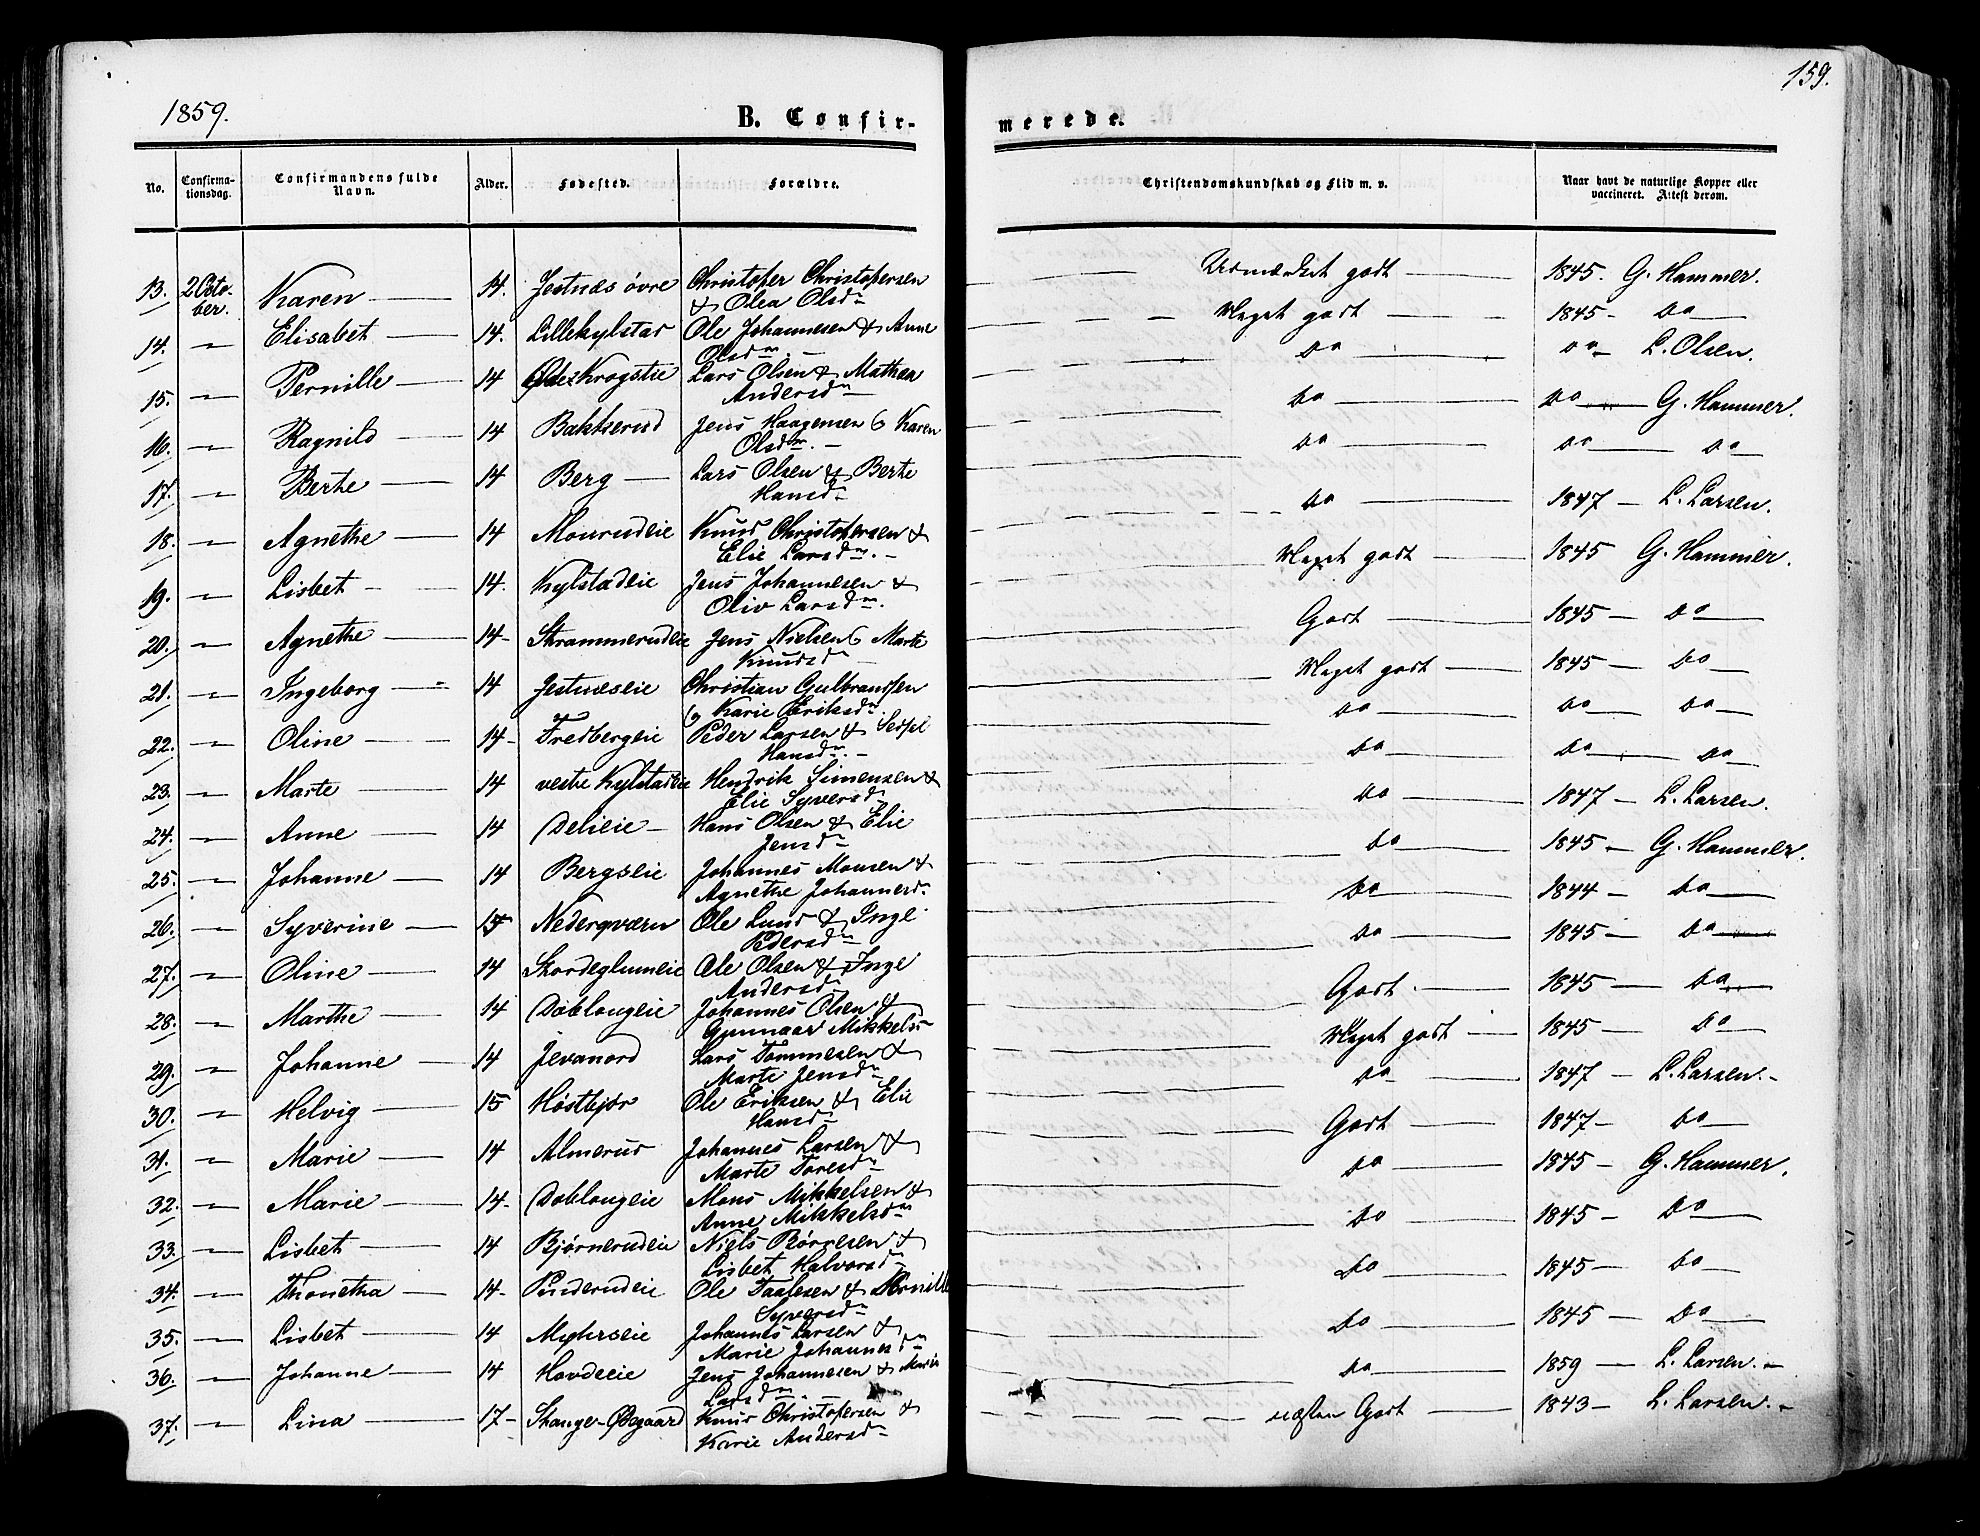 1859.
B. Confir-
merede.
159.
No.
Confirma-
tionsdag.
Confirmandens fulde
Navn.
Alder.
Fødested.
Forældre.
Christendomskundskab og Flid m. v.
Naar havt de naturlige Kopper eller
vaccineret. Attest derom.
13. 2 Octo- Karen 14. Jestnæs övre Christofer Christofersen Udmærket godt 1845. G. Hammer.
ber. & Olea Olsdn
14. Elisabet 14. Lillekylstad Ole Johannesen & Anne Meget godt 1845 Do
Olsdn.
15. Pernille 14 Krogstie Lars Olsen & Mathea Do Do L. Olsen.
Andersdn
16. Ragnild 14 Bakkerud Jens Haagensen & Karen Do Do G. Hammer.
Olsdn.
17. Berthe 14 Berg Lars Olsen & Berte Do Do Do
Hansdn
18. Agnethe 14 Mourudeie Knud Christofersen & Do 1847 L. Larsen.
Elie Larsdn.
19. Lisbet 14. Kylstadeie Jens Johannesen & Meget godt 1845 G. Hammer.
Oliv Larsdn.
20. Agnethe 14 Skrammerudeie Jens Nielsen & Marte Godt 1845 Do
Knudsdn
21. Ingeborg 14 Jestnæseie Christian Gulbrandsen Meget godt 1845 Do
& Karie Eriksdn.
22. Oline 14 Fredbergeie Peder Larsen & Do Do Do
Hansdn.
23. Marte 14 vestre Kylstadeie Hendrik Simensen & Do Do Do
Elie Syversdn
24. Anne 14 Delieie Hans Olsen & Elie Do 1847 L. Larsen.
Jensdn
25. Johanne 14 Bergseie Johannes Monsen & Do 1845 G. Hammer.
Agnethe Johannesdn
26. Syverine Nederqværn Ole Lund & Inge Do 1844 Do
Pedersdn
27. Oline 14 Skordeglumeie Ole Olsen & Inge Do 1845 Do
Andersdn
28. Marthe 14 Doblougeie Johannes Olsen & Godt 1845 Do
Gunnaar Mikkelsdn
29. Johanne 14 Jevanord Lars Tommesen & Meget godt 1845 Do
Marte Jensdn
30. Helvig 15 Høstbjør Ole Eriksen & Elie Do 1847 L. Larsen.
Hansdn
31. Marie 14 Almerud Johannes Larsen & Godt 1847 Do
Marte Toresdn
32. Marie 14 Doblougeie Mons Mikkelsen & Do 1845 G. Hammer.
Anne Mikkelsdn
33. Lisbet 14 Bjørnerudeie Niels Börresen & Do 1845 Do
Lisbet Halvorsdn
34. Thonetha 14 Pinderudeie Ole Taalesen & Pernille Do 1845 Do
Syversdn
35. Lisbet 14 Myhrseie Johannes Larsen & Do 1845 Do
Marie Johannesdn
36. Johanne 14 Hovdeeie Jens Johannesen & Marie Do 1859 L. Larsen.
Larsdn
37. Lina 17 Stange-Ødegaard Knud Christofersen & næsten Godt 1843 L. Larsen.
Karie Andersdn